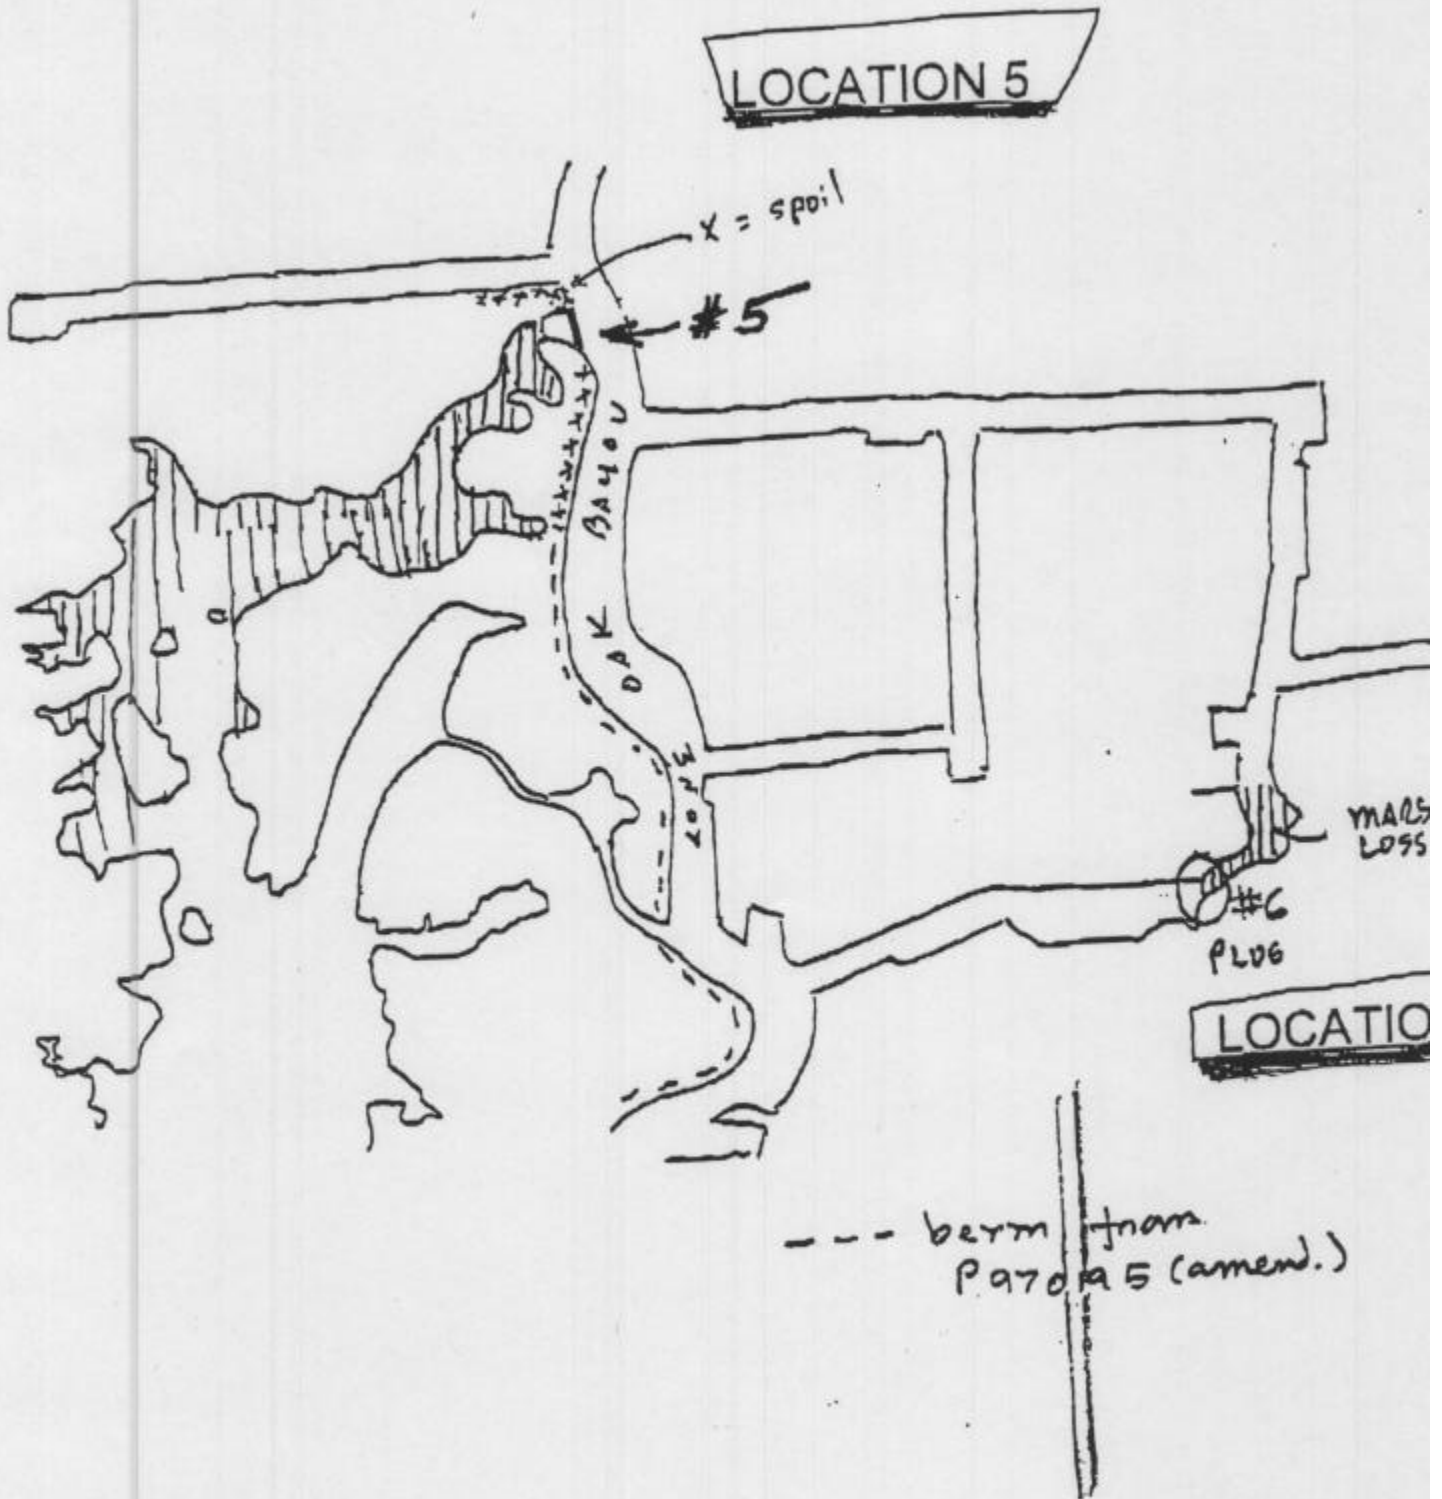 LOCATION 5
x = spoil
#5
BAYOU
MARS
LOSS
#6
PLUG
LOCATIO
--- berm from
P97095 (amend.)